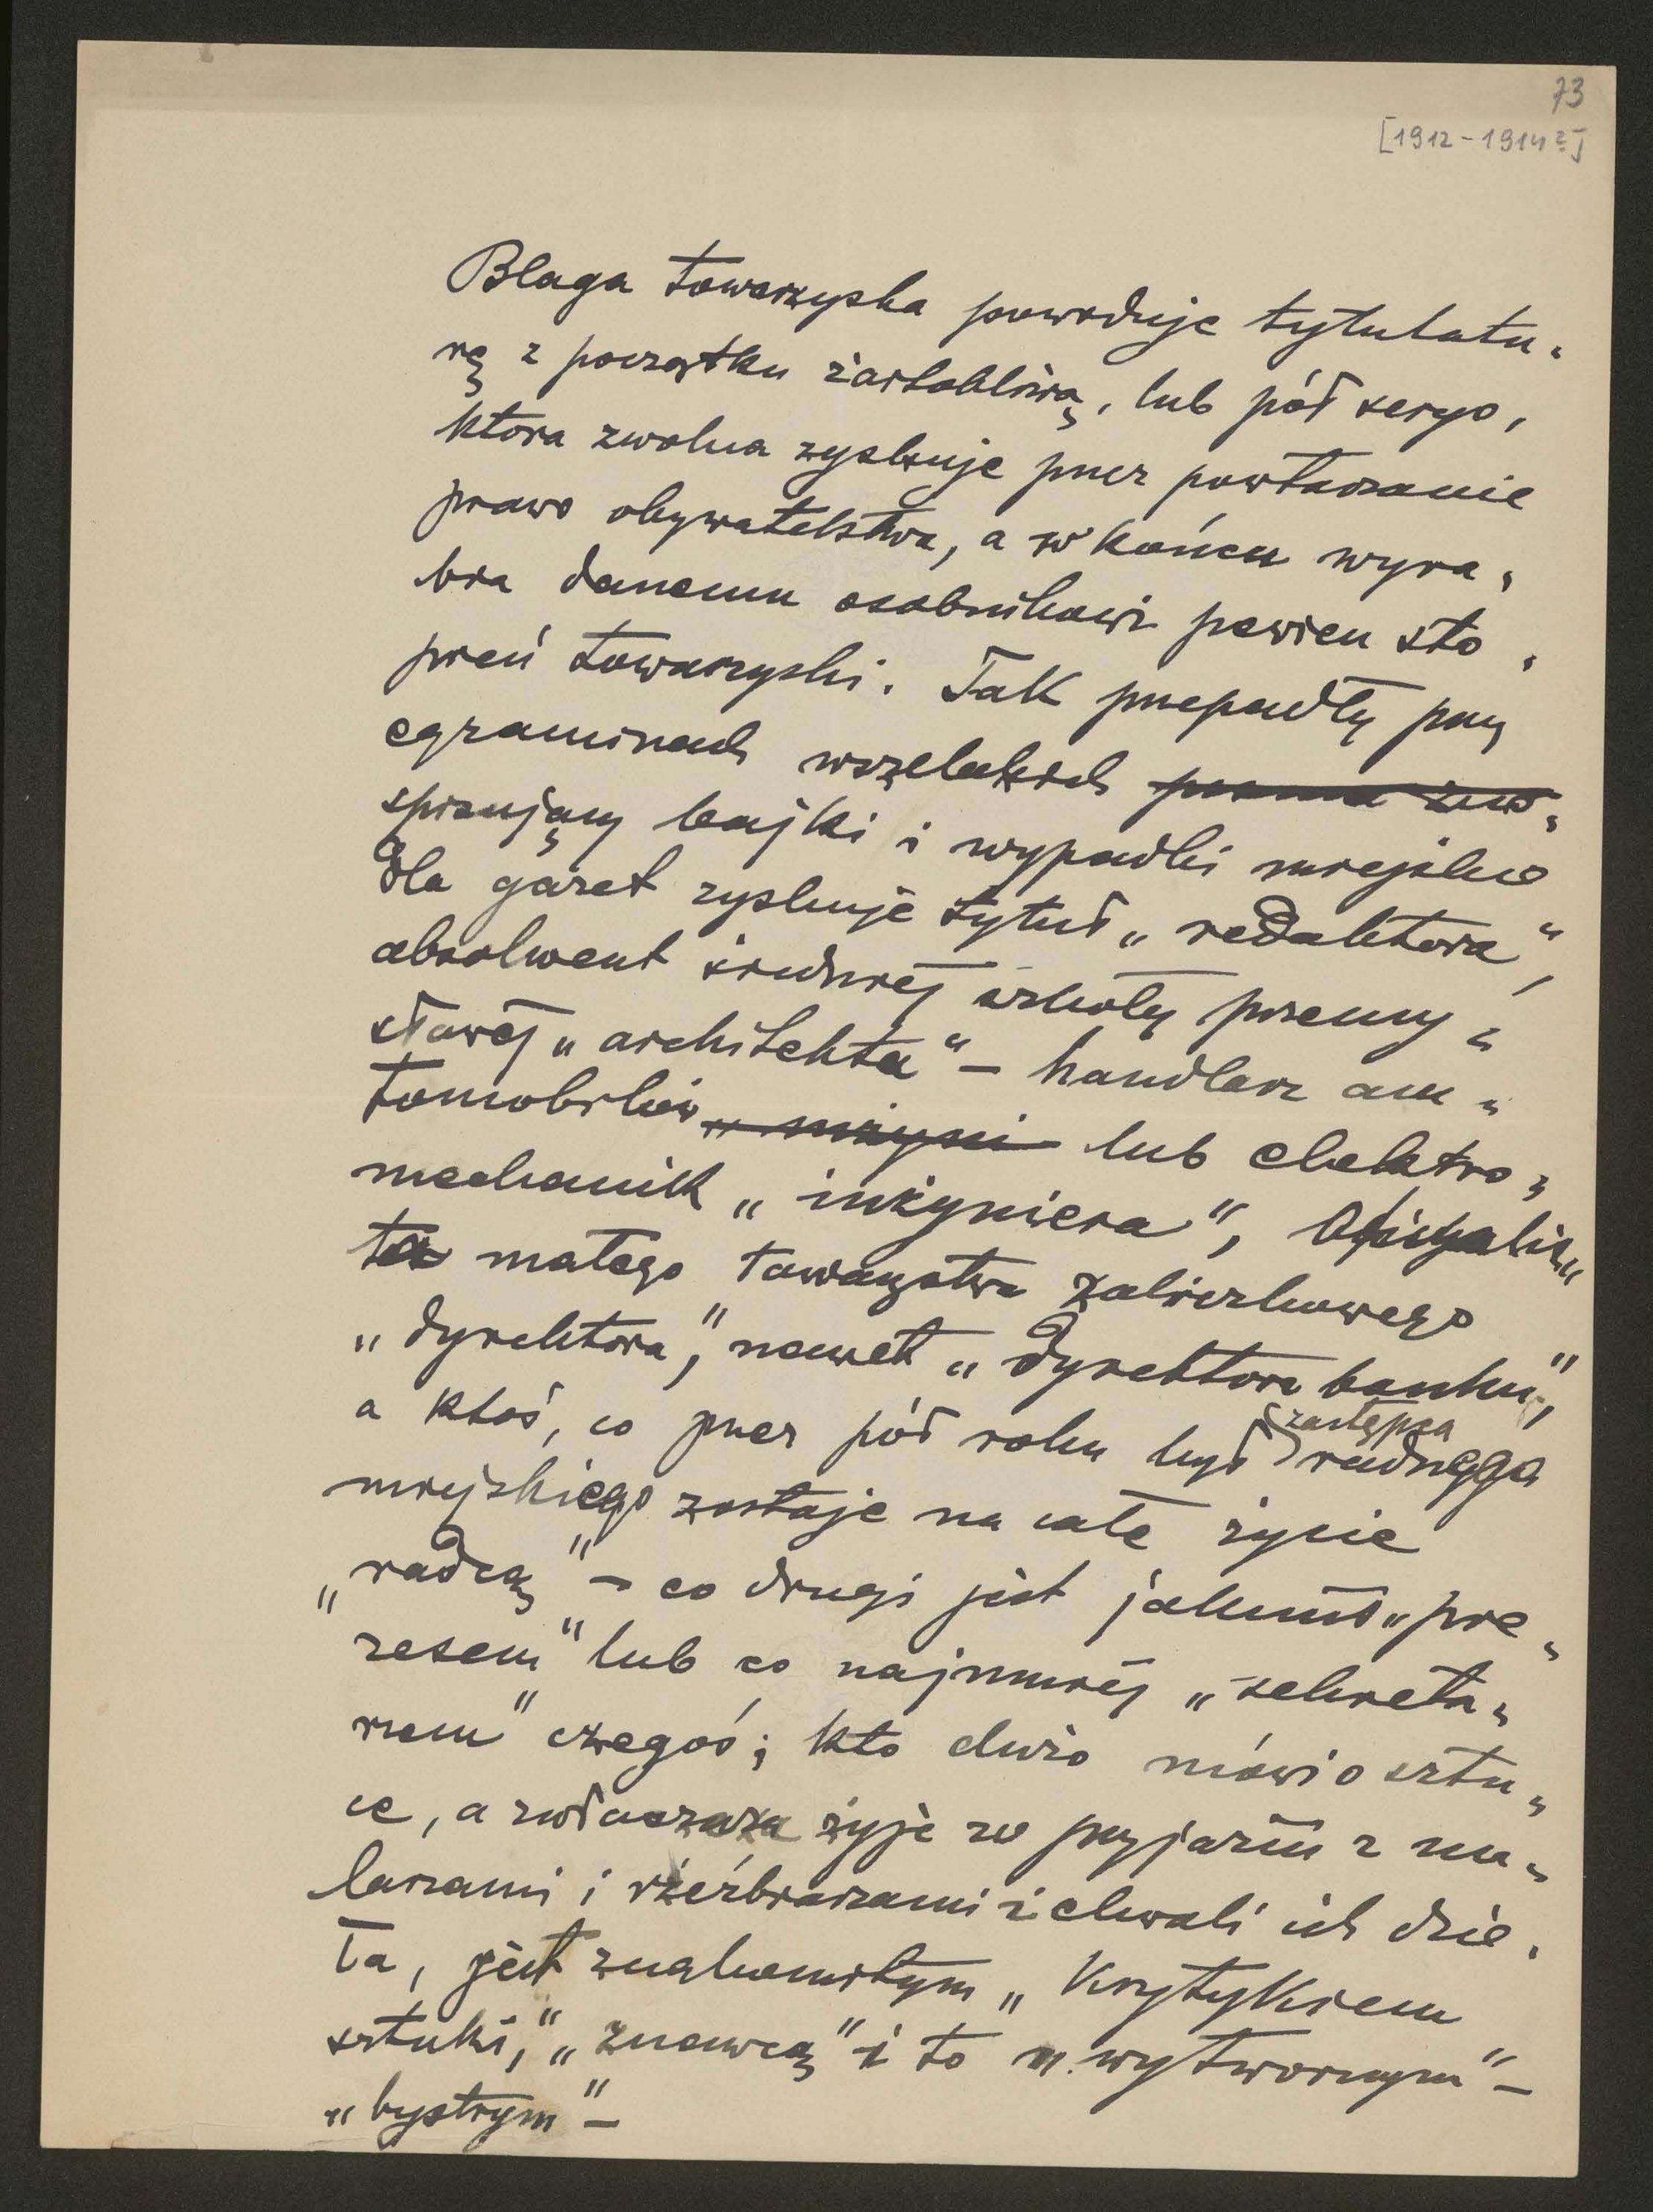 73
[1912-1914?]
Blaga towarzyska powoduje tytulatu„
rę z początku żartobliwą, lub pół seryo,
która zwolna zyskuje przez powtarzanie
prawo obywatelstwa, a w końcu wyra„
bia danemu osobnikowi pewien sto„
pień towarzyski. Tak przepadły przy
egzaminach wszelakich
spisujący bajki i wypadki miejskie
dla gazet zyskuje tytuł „redaktora",
absolwent średniej szkoły przemy„
słowej „architekta" – handlarz au„
tomobilów „inżyni lub elektro„
mechanik „inżyniera",
ta małego towarzystwa zaliczkowego
„dyrektora", nawet „dyrektora banku",
a ktoś, co przez pół roku był zastępcą radnego
miejskiego zostaje na całe życie
„radcą" – co drugi jest jakimś „pre„
zesem" lub co najmniej „sekreta„
rzem" czegoś; kto dużo mówi o sztu„
ce, a zwłaszcza żyje w przyjaźni z ma„
larzami i rzeźbiarzami i chwali ich dzie„
ła, jest znakomitym „krytykiem
sztuki", „znawcą" i to „wytwornym" –
„bystrym" –